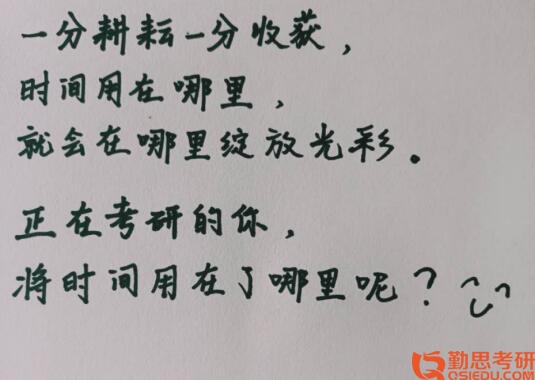 一分耕耘一分收获，
时间用在哪里，
就会在哪里绽放光彩。
正在考研的你，
将时间用在了哪里呢？
勤思考研
QSIEDU.COM